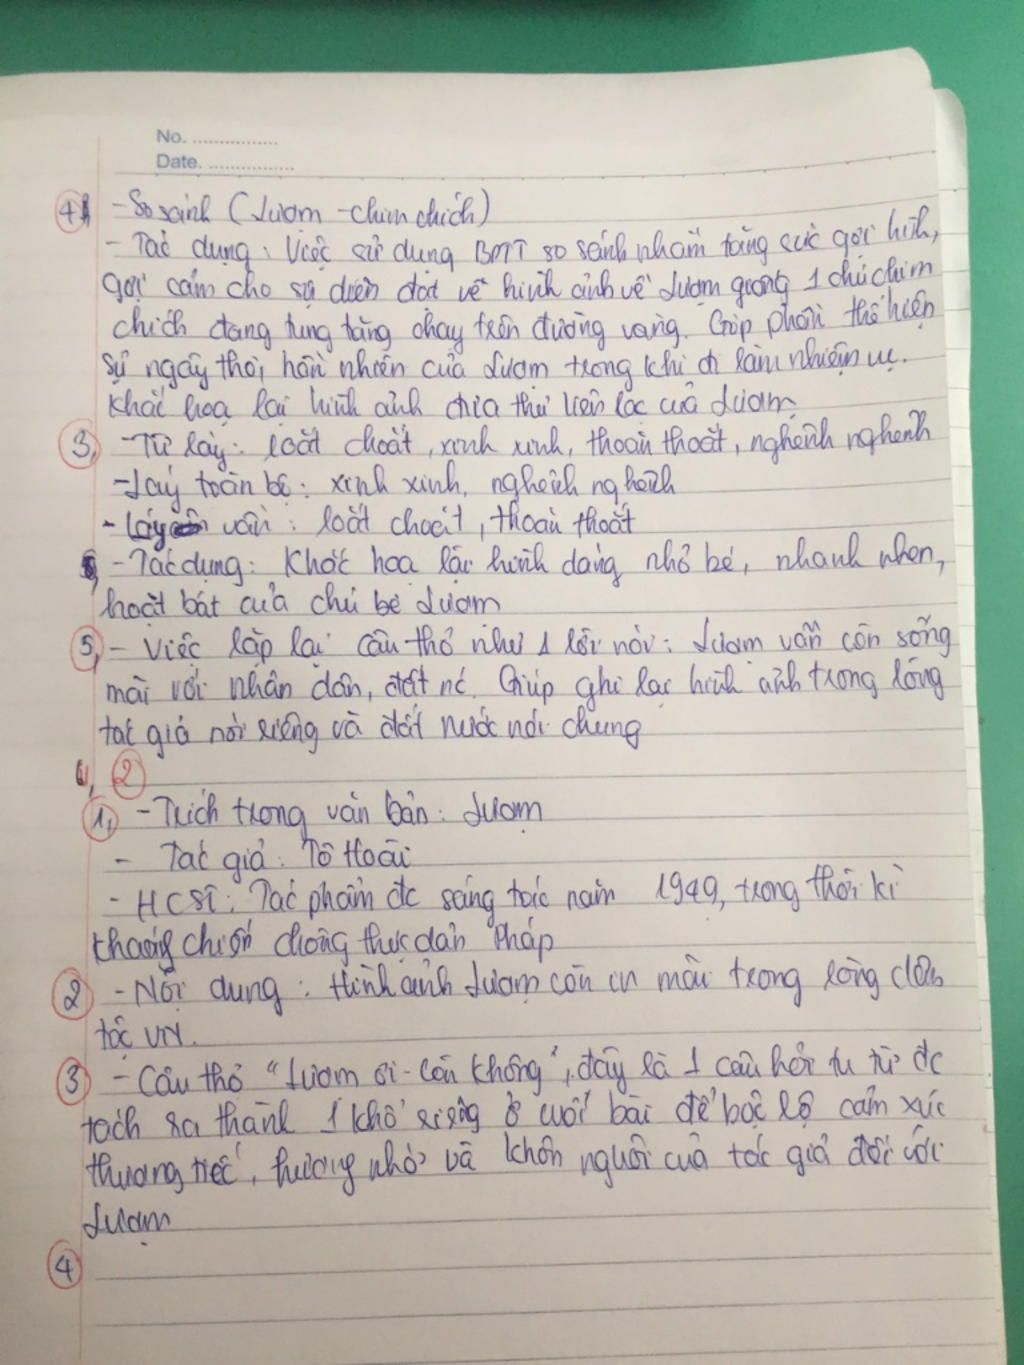 No. ................
Date. ................
4, - So sánh (Lượm - chim chích)
- Tác dụng: Việc sử dụng BPTT so sánh nhằm tăng sức gợi hình,
gợi cảm cho sự diễn đạt về hình ảnh về Lượm giống 1 chú chim
chích đang tung tăng chạy trên đường vàng. Góp phần thể hiện
sự ngây thơ, hồn nhiên của Lượm trong khi đi làm nhiệm vụ.
Khắc hoạ lại hình ảnh đứa thư liên lạc của Lượm
3, - Từ láy: loắt choắt, xinh xinh, thoăn thoắt, nghênh nghênh
- Láy toàn bộ: xinh xinh, nghênh nghênh
- Láy vần: loắt choắt, thoăn thoắt
- Tác dụng: Khắc hoạ lại hình dáng nhỏ bé, nhanh nhẹn,
hoạt bát của chú bé Lượm
5, - Việc lặp lại câu thơ như 1 lời nói: Lượm vẫn còn sống
mãi với nhân dân, đất nc. Giúp ghi lại hình ảnh trong lòng
tác giả nói riêng và đất nước nói chung
2
1, - Trích trong văn bản: Lượm
- Tác giả: Tô Hoài
- HCST: Tác phẩm đc sáng tác năm 1949, trong thời kì
kháng chiến chống thực dân Pháp
2 - Nội dung: Hình ảnh Lượm còn in mãi trong lòng dân
tộc VN.
3 - Câu thơ "Lượm ơi - còn không", đây là 1 câu hỏi tu từ đc
tách ra thành 1 khổ riêng ở cuối bài để bộc lộ cảm xúc
thương tiếc, hương nhớ và khôn nguôi của tác giả đối với
Lượm
4